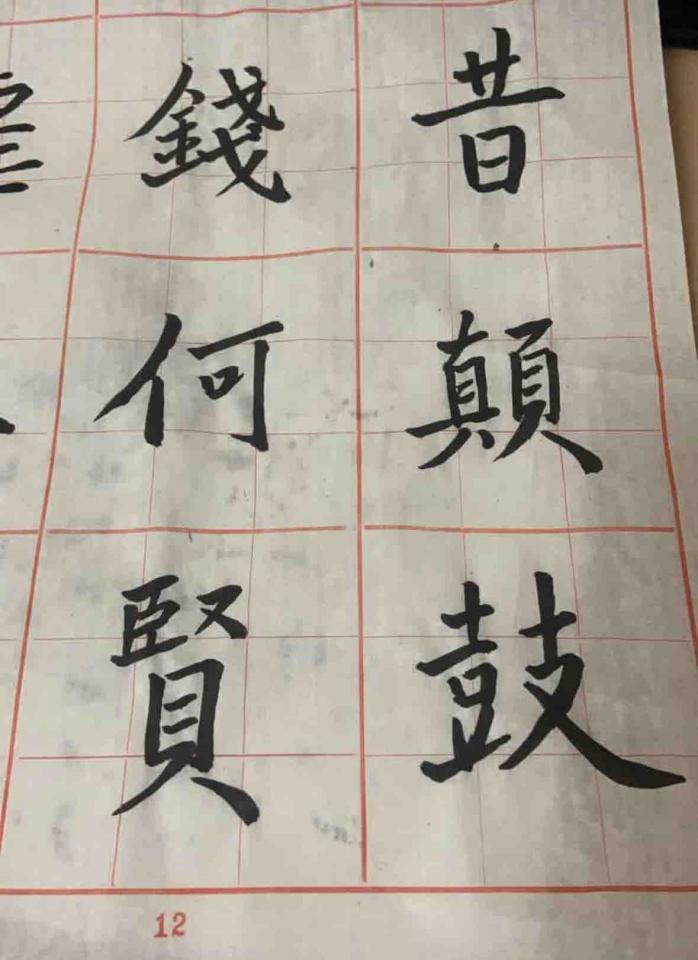 昔顛鼓
錢何賢
12